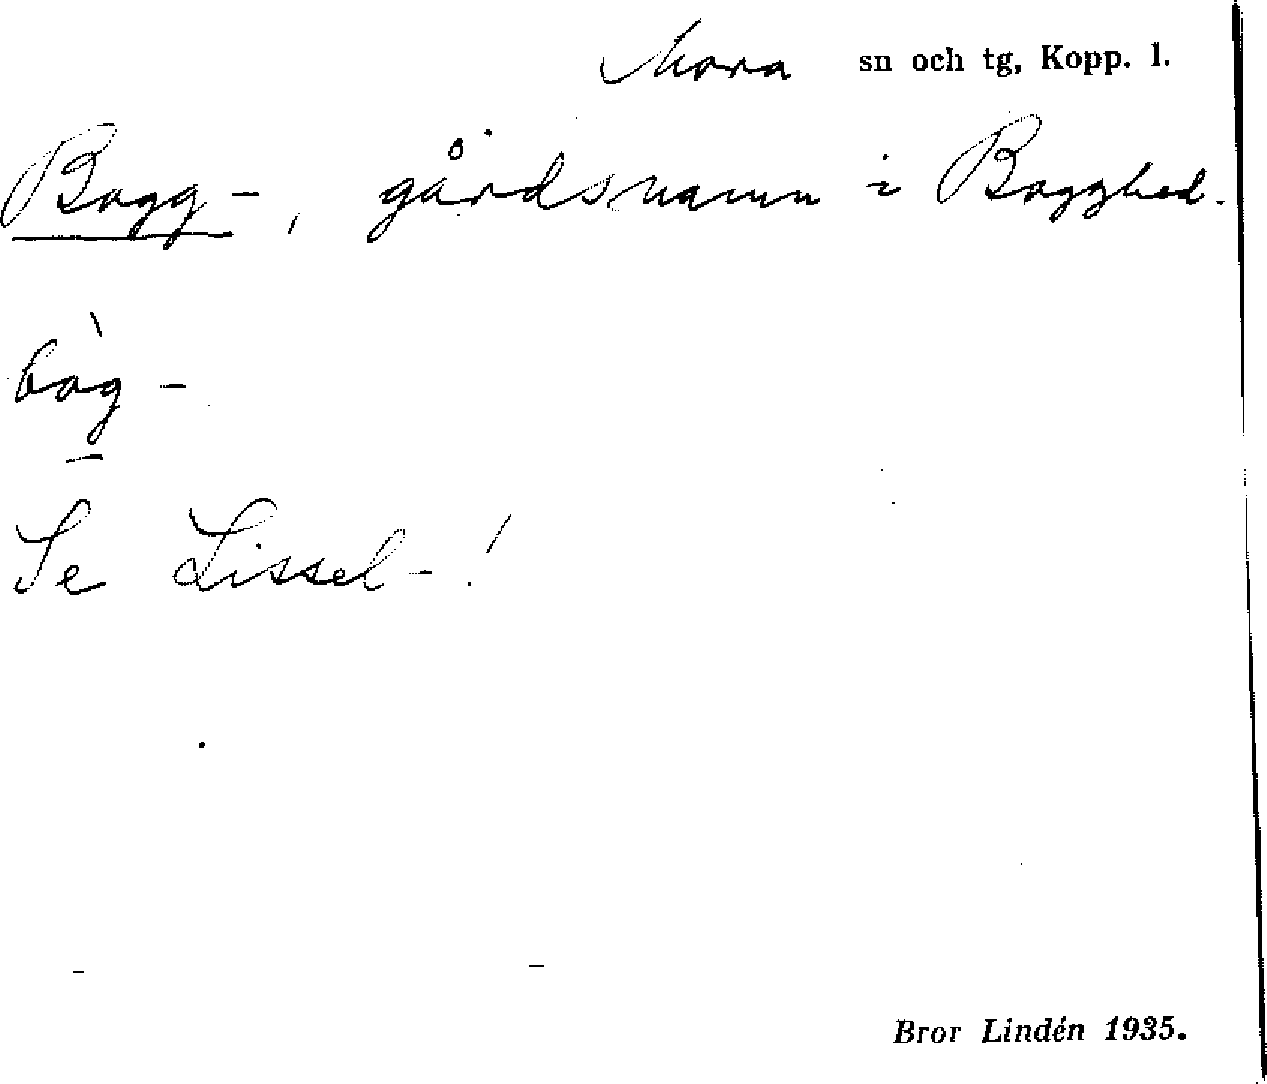 Mora sn och tg, Kopp. l.
Bagg-, gårdsnamn i Bagghed.
bàg-
Se Lissel-!
Bror Lindén 1935.